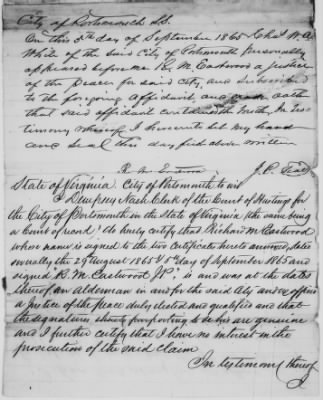 City of Portsmouth SS.
On this 5th day of September 1865 Chas W. A.
White of the said City of Portsmouth personally
appeared before me R. M. Eastwood a justice
of the Peace for said City, and subscribed
to the foregoing affidavit and oath
that said affidavit contains the truth, In tes-
timony whereof I hereunto set my hand
and seal this day first above written
J. P. Seal
State of Virginia, City of Portsmouth to wit
I Dempsey Nash Clerk of the Court of Hustings for
the City of Portsmouth in the State of Virginia (the same being
a Court of record) do hereby certify that Richard M. Eastwood
whose name is signed to the two certificates hereto annexed, dates
severally the 29 August 1865 & 5th day of September 1865 and
signed R. M. Eastwood J.P. is and was at the dates
thereof an alderman in and for the said City and ex officio
a justice of the peace duly elected and qualified and that
the signatures thereto purporting to be his are genuine
and I further certify that I have no interest in the
prosecution of the said claim
In testimony thereof